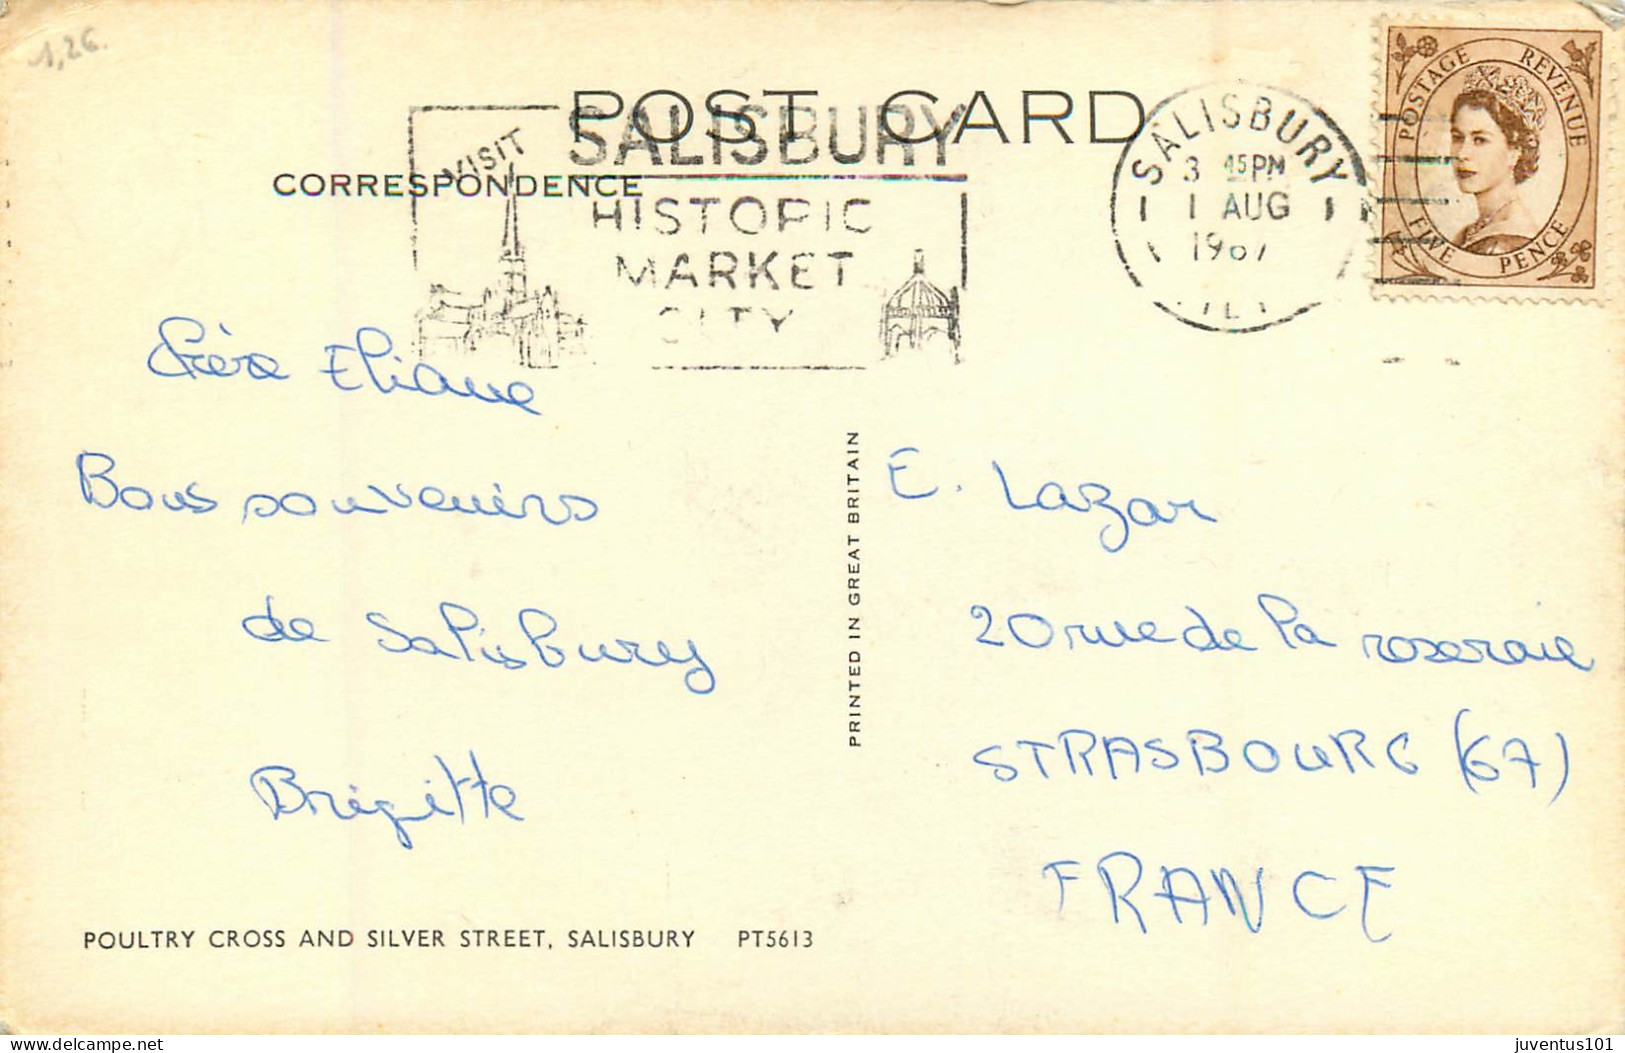 1,2€.
POST CARD
CORRESPONDENCE
VISIT
SALISBURY
HISTORIC
MARKET
CITY
SALISBURY
3 45PM
1 AUG
1967
POSTAGE REVENUE
FIVE PENCE
Chère Eliane
Bons souvenirs
de Salisbury
Brigitte
PRINTED IN GREAT BRITAIN
E. Lazar
20 rue de la roseraie
STRASBOURG (67)
FRANCE
POULTRY CROSS AND SILVER STREET, SALISBURY PT5613
juventus101